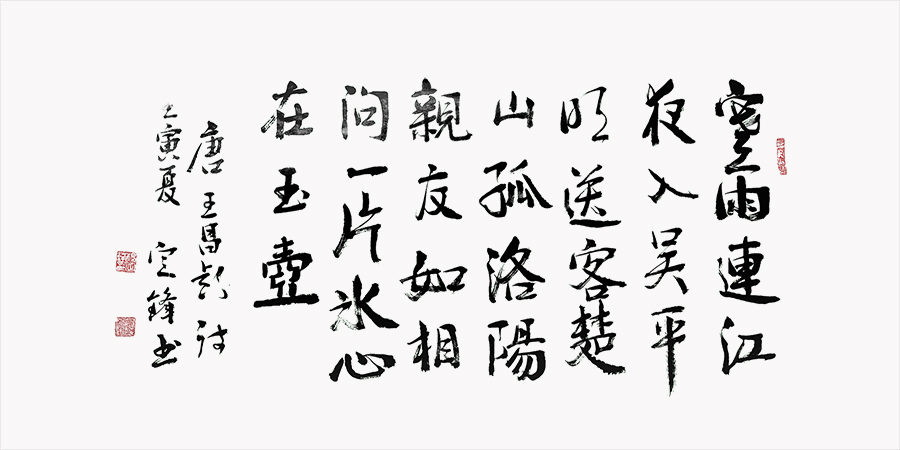 寒雨連江
夜入吴平
明送客楚
山孤洛陽
親友如相
问一片氷心
在玉壺
唐王昌龄詩
壬寅夏 定鋒书